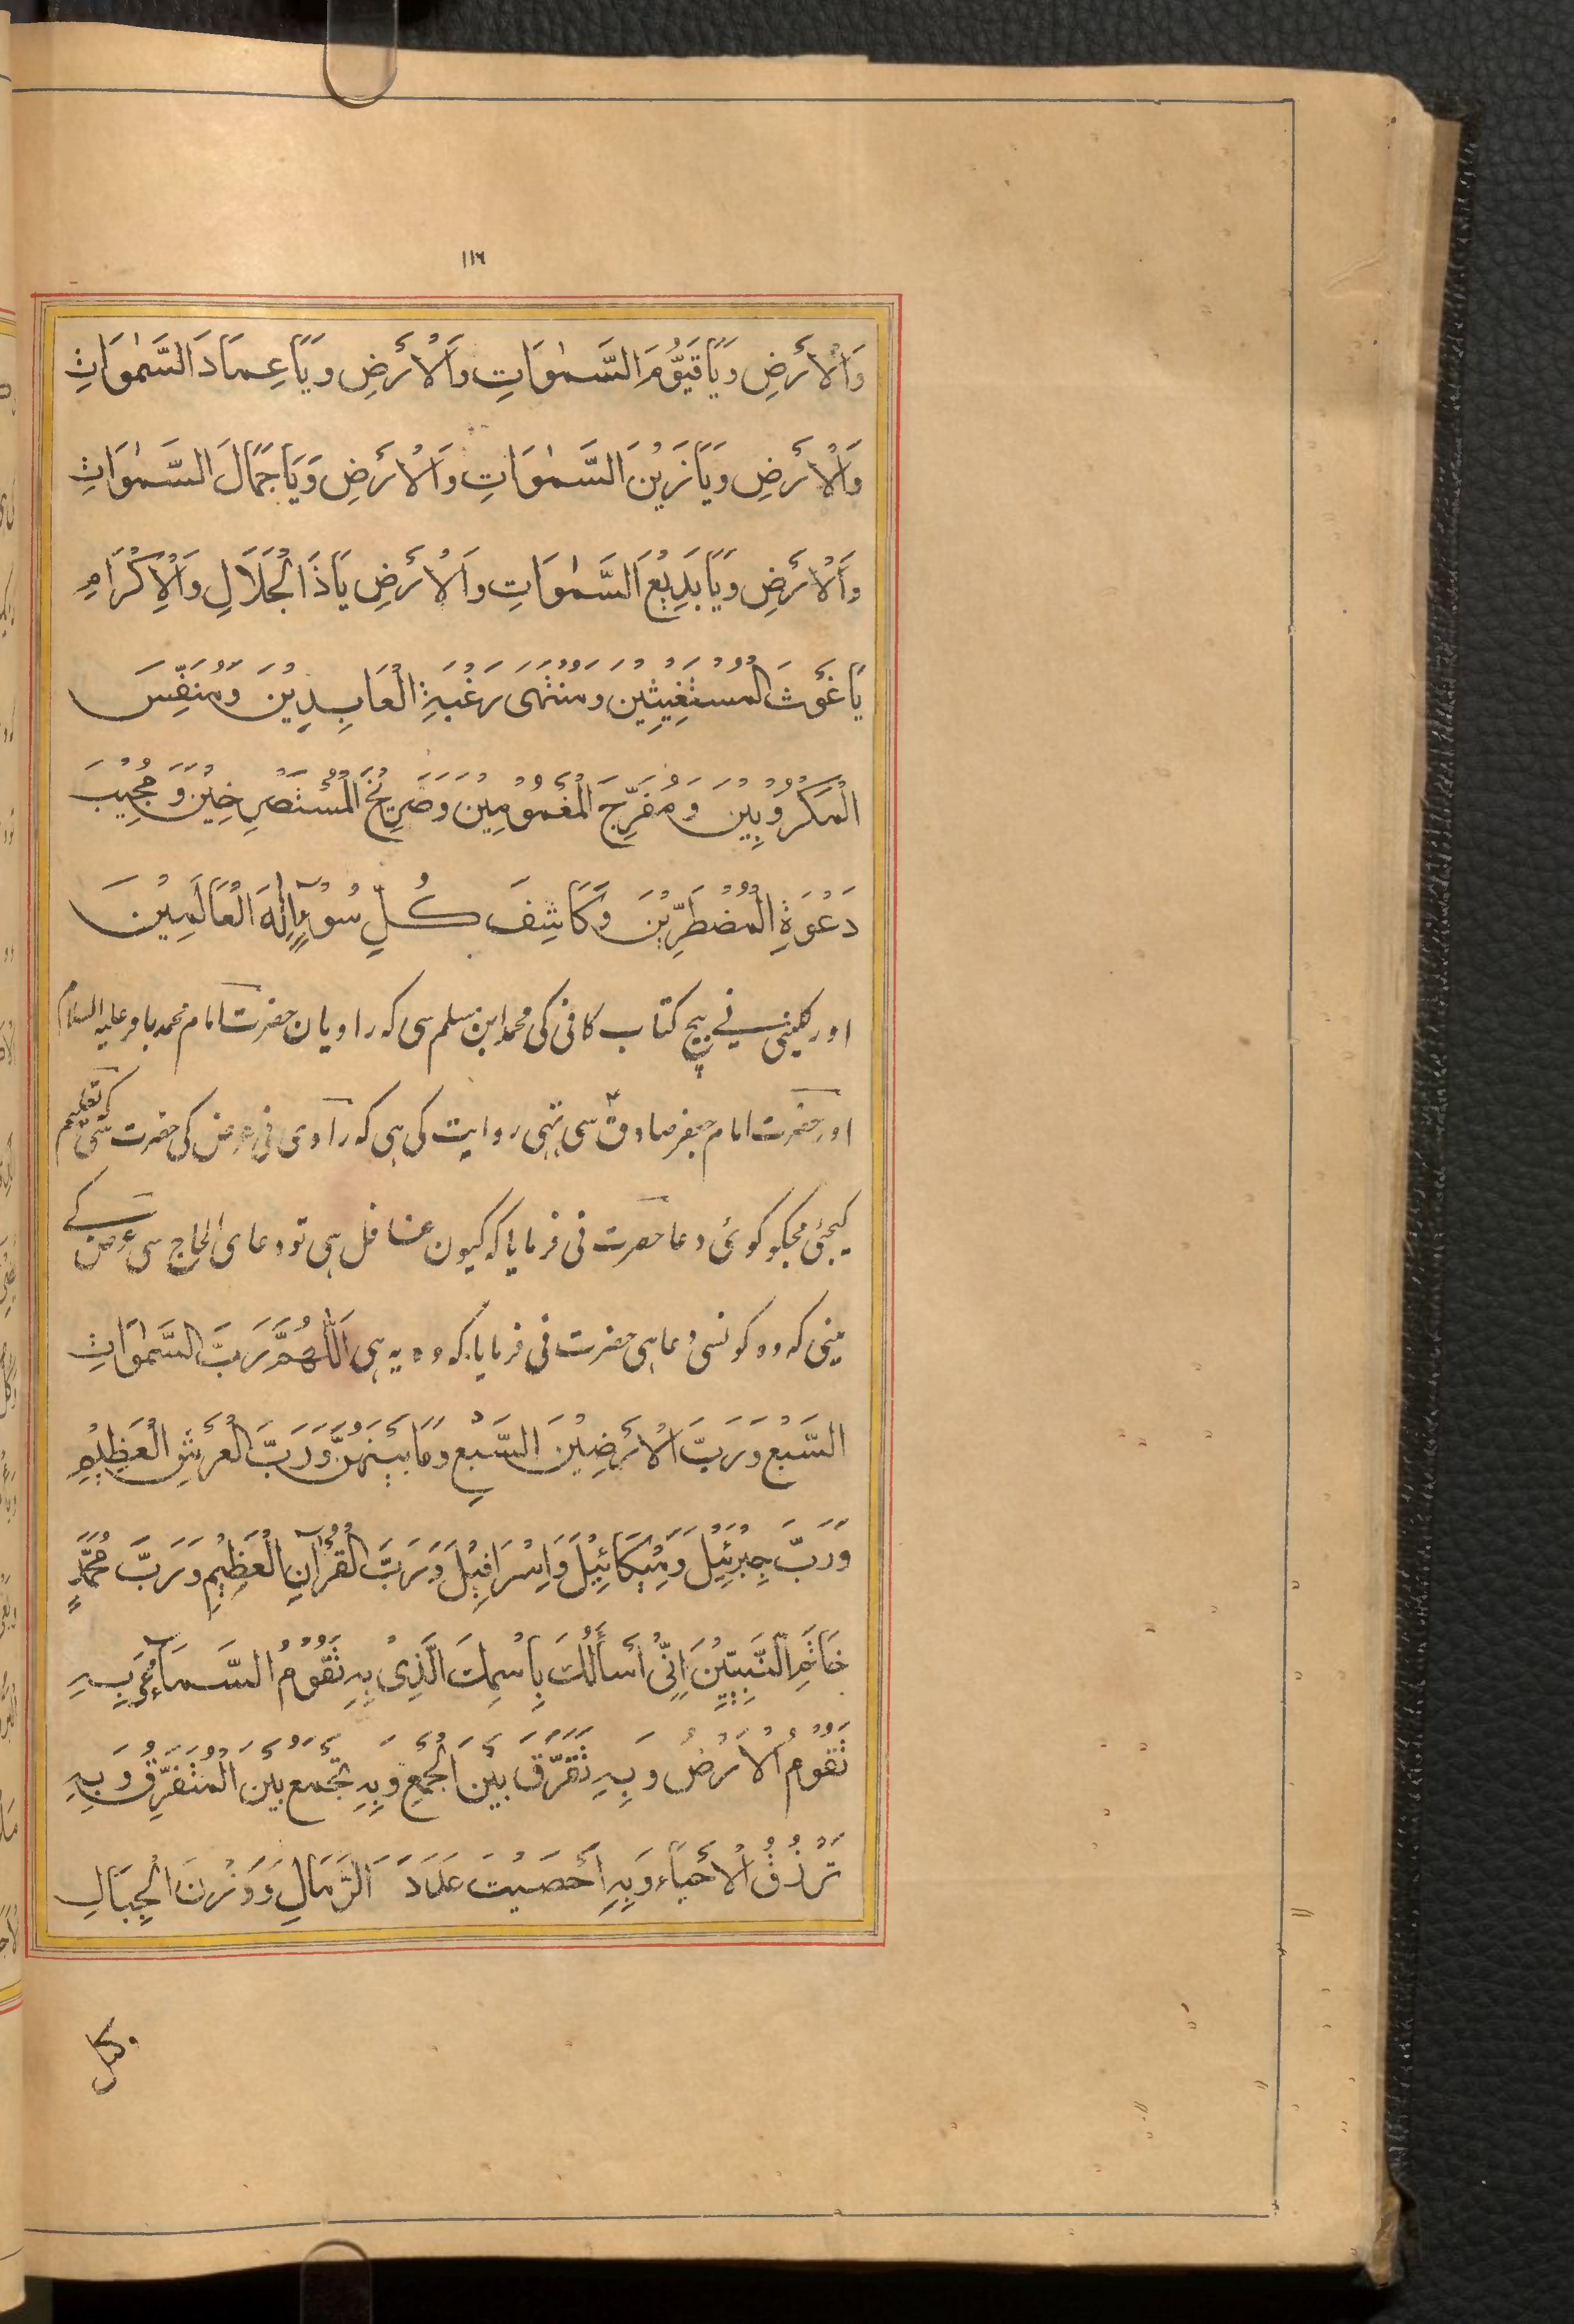 ١١٦
وَالْاَرْضِ وَيَا قَيُّوْمَ السَّمٰوَاتِ وَالْاَرْضِ وَيَا عِمَادَ السَّمٰوَاتِ
وَالْاَرْضِ وَيَا زَيْنَ السَّمٰوَاتِ وَالْاَرْضِ وَيَا جَمَالَ السَّمٰوَاتِ
وَالْاَرْضِ وَيَا بَدِيْعَ السَّمٰوَاتِ وَالْاَرْضِ يَا ذَا الْجَلَالِ وَالْاِكْرَامِ
يَا غَوْثَ الْمُسْتَغِيْثِيْنَ وَمُنْتَهٰى رَغْبَةِ الْعَابِدِيْنَ وَمُنَفِّسَ
الْمَكْرُوْبِيْنَ وَمُفَرِّجَ الْمَغْمُوْمِيْنَ وَصَرِيْخَ الْمُسْتَصْرِخِيْنَ وَمُجِيْبَ
دَعْوَةِ الْمُضْطَرِّيْنَ وَكَاشِفَ كُلِّ سُوْٓءٍ اِلٰهَ الْعَالَمِيْنَ
اور کلینی نے بیچ کتاب کافی کی محمد ابن مسلم سی کہ راویان حضرت امام محمد باقر علیہ السلام
اور حضرت امام جعفر صادق؏ سی تہی روایت کی ہی کہ راوی نی عرض کی حضرت سی کہ تعلیم
کیجئی مجکو کوئی دعا حضرت نی فرمایا کہ کیون غافل ہی تو دعای الحاح سی عرض کے
مینی کہ وہ کونسی دعا ہی حضرت نی فرمایا کہ وہ یہ ہی اَللّٰهُمَّ رَبَّ السَّمٰوَاتِ
السَّبْعِ وَرَبَّ الْاَرَضِيْنَ السَّبْعِ وَمَا بَيْنَهُنَّ وَرَبَّ الْعَرْشِ الْعَظِيْمِ
وَرَبَّ جِبْرَئِيْلَ وَمِيْكَائِيْلَ وَاِسْرَافِيْلَ وَرَبَّ الْقُرْآنِ الْعَظِيْمِ وَرَبَّ مُحَمَّدٍ
خَاتَمِ النَّبِيِّيْنَ اِنِّيْ اَسْأَلُكَ بِاسْمِكَ الَّذِيْ بِهِ تَقُوْمُ السَّمَآءُ وَبِهِ
تَقُوْمُ الْاَرْضُ وَبِهِ تُفَرِّقُ بَيْنَ الْجَمْعِ وَبِهِ تَجْمَعُ بَيْنَ الْمُتَفَرِّقِ وَبِهِ
تَرْزُقُ الْاَحْيَاءَ وَبِهِ اَحْصَيْتَ عَدَدَ الرِّمَالِ وَوَزْنَ الْجِبَالِ
وکیل